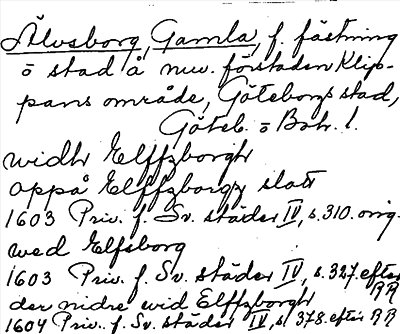 Älvsborg, Gamla, f. fästning
o stad å nuv. förstaden Klip-
pans område, Göteborgs stad,
Göteb. o Boh. l.
widh Elffzborgh
oppå Elffzborgz slott
1603 Priv. f. Sv. städer IV, s. 310. orig.
wed Elfsborg
1603 Priv. f. Sv. städer IV, s. 327. efter RR
der nidre wid Elffzborgh
1604 Priv. f. Sv. städer IV, s. 378. efter RR